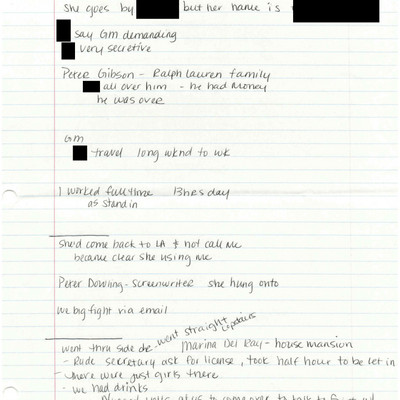 She goes by but her name is
say Gm demanding
very secretive
Peter Gibson - Ralph Lauren family
all over him - he had money
he was over
Gm
travel long wknd to wk
I worked fulltime 13hrs day
as stand in
she'd come back to LA & not call me
became clear she using me
Peter Dowling - screenwriter she hung onto
we big fight via email
went thru side dr - went straight upstairs
Marina Del Ray - house mansion
- Rude secretary ask for license, took half hour to be let in
- there were just girls there
- we had drinks
us to come over to talk to